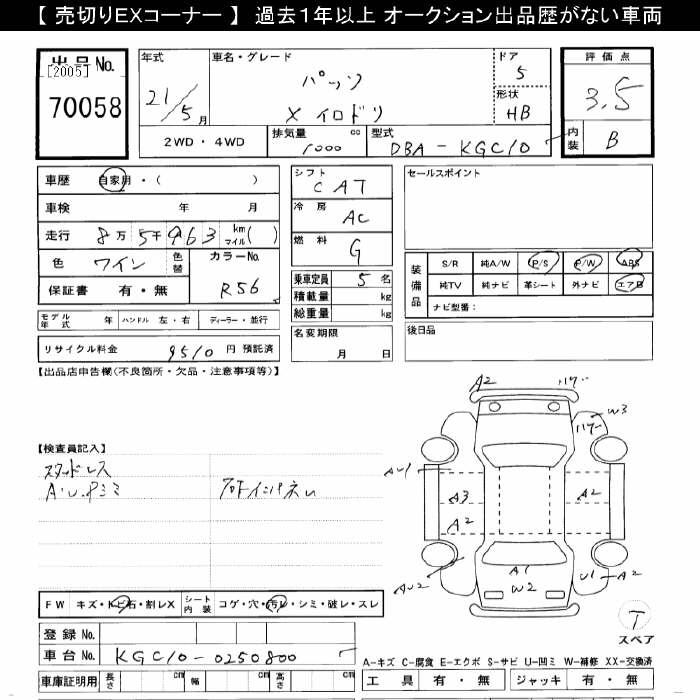 【 売切りEXコーナー 】 過去1年以上 オークション出品歴がない車両
出品 No. [2005] 70058
年式 21/5 月
車名・グレード パッソ X イロドリ
ドア 5
形状 HB
評価点 3.5
内装 B
2WD・4WD
排気量 1000 cc
型式 DBA-KGC10
車歴 自家用・( )
車検 年 月
走行 8万5千963 km マイル( )
色 ワイン 色替 カラーNo. R56
保証書 有・無
モデル年式 年 ハンドル 左・右 ディーラー・並行
リサイクル料金 9510 円 預託済
シフト CAT
冷房 AC
燃料 G
乗車定員 5 名
積載量 kg
総重量 kg
名変期限 月 日
セールスポイント
装備品 S/R 純A/W P/S P/W ABS
純TV 純ナビ 革シート 外ナビ エアB
ナビ型番:
後日品
【出品店申告欄(不良箇所・欠品・注意事項等)】
【検査員記入】
スタッドレス
A・U・Pミミ
A2
W3
AU1
A3 A2
A2
A1
W2
AU2
U1 A2
T
スペア
FW キズ・トビ石・割レX シート内装 コゲ・穴・汚レ・シミ・破レ・スレ
登録 No.
車台 No. KGC10-0250800
車庫証明用 長さ cm 幅 cm 高さ cm
A-キズ C-腐食 E-エクボ S-サビ U-凹ミ W-補修 XX-交換済
工具 有・無 ジャッキ 有・無